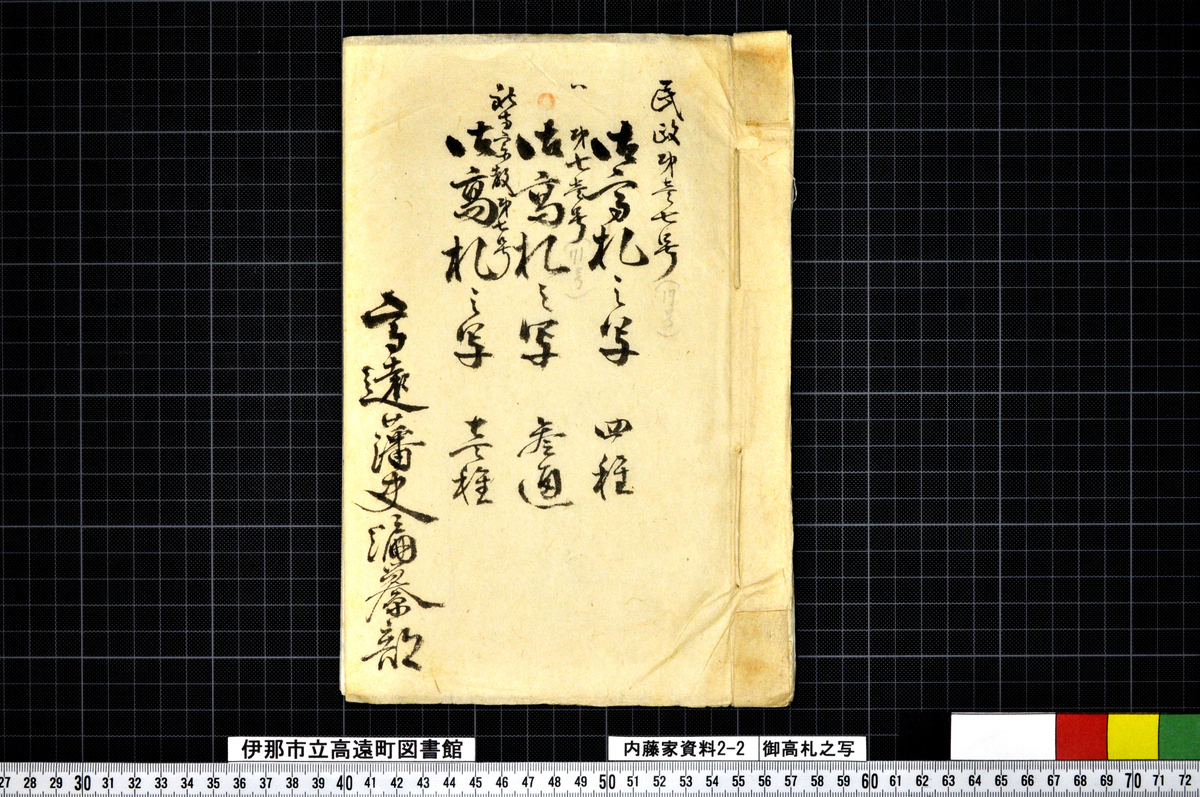 民政第壱七号
御高札之写 四種
〃 第七壱号
御高札之写 参通
社寺宗教第七号
御高札之写 壱種
高遠藩史編纂部
伊那市立高遠町図書館
内藤家資料2-2 御高札之写
27 28 29 30 31 32 33 34 35 36 37 38 39 40 41 42 43 44 45 46 47 48 49 50 51 52 53 54 55 56 57 58 59 60 61 62 63 64 65 66 67 68 69 70 71 72